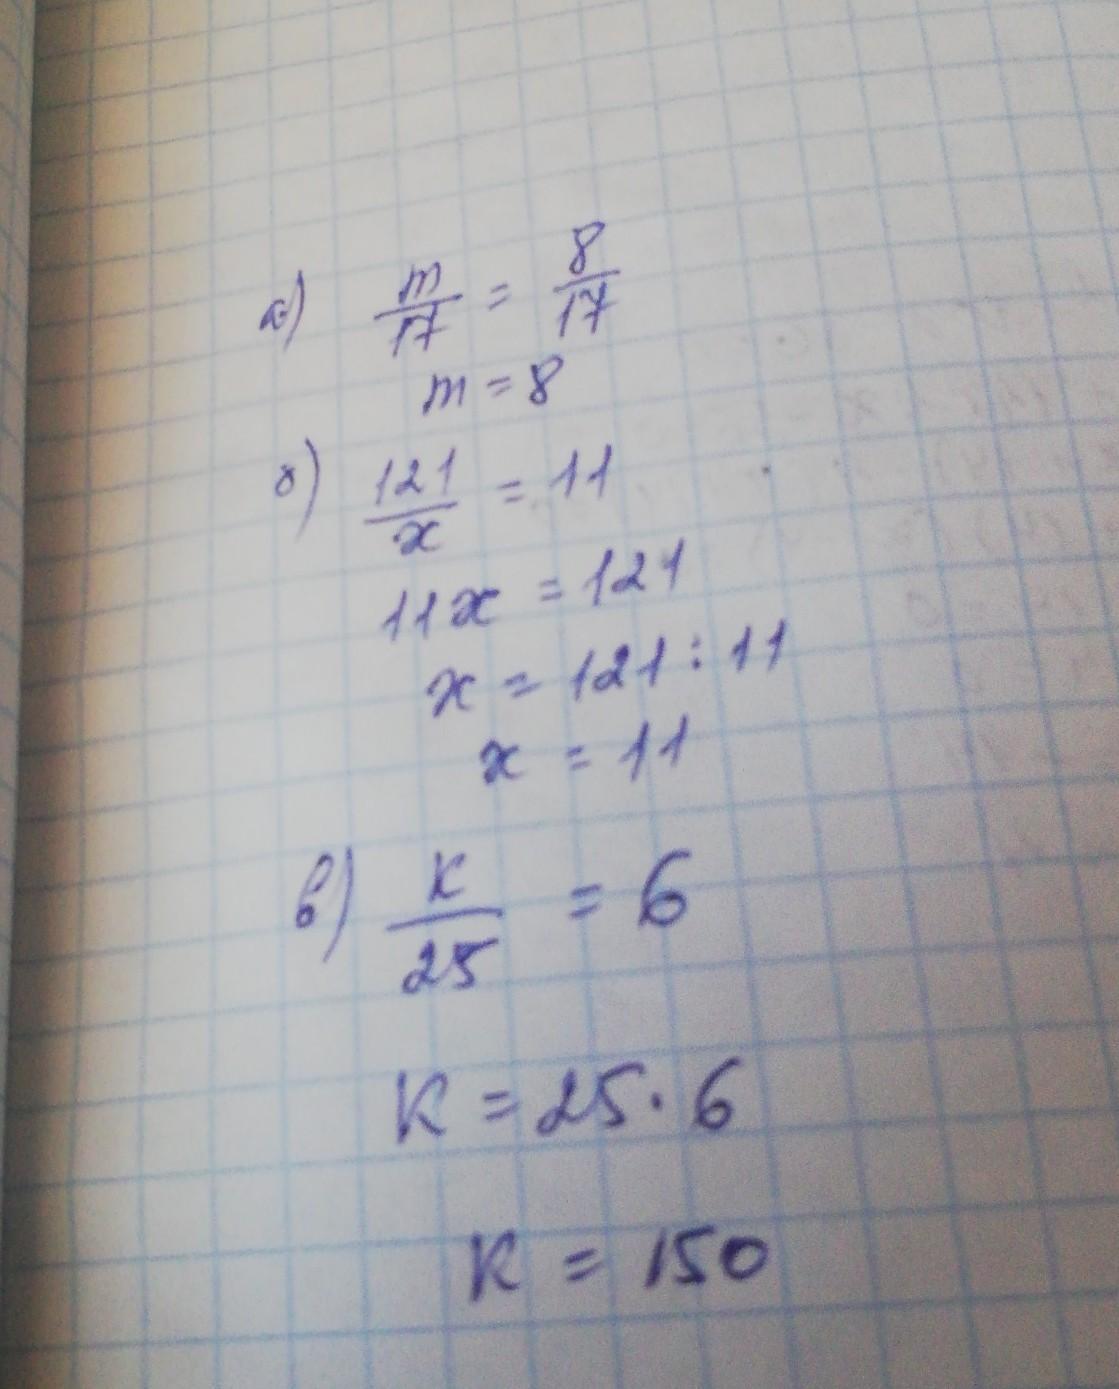 а) m/17 = 8/17
m = 8
б) 121/x = 11
11x = 121
x = 121 : 11
x = 11
в) к/25 = 6
к = 25 · 6
к = 150